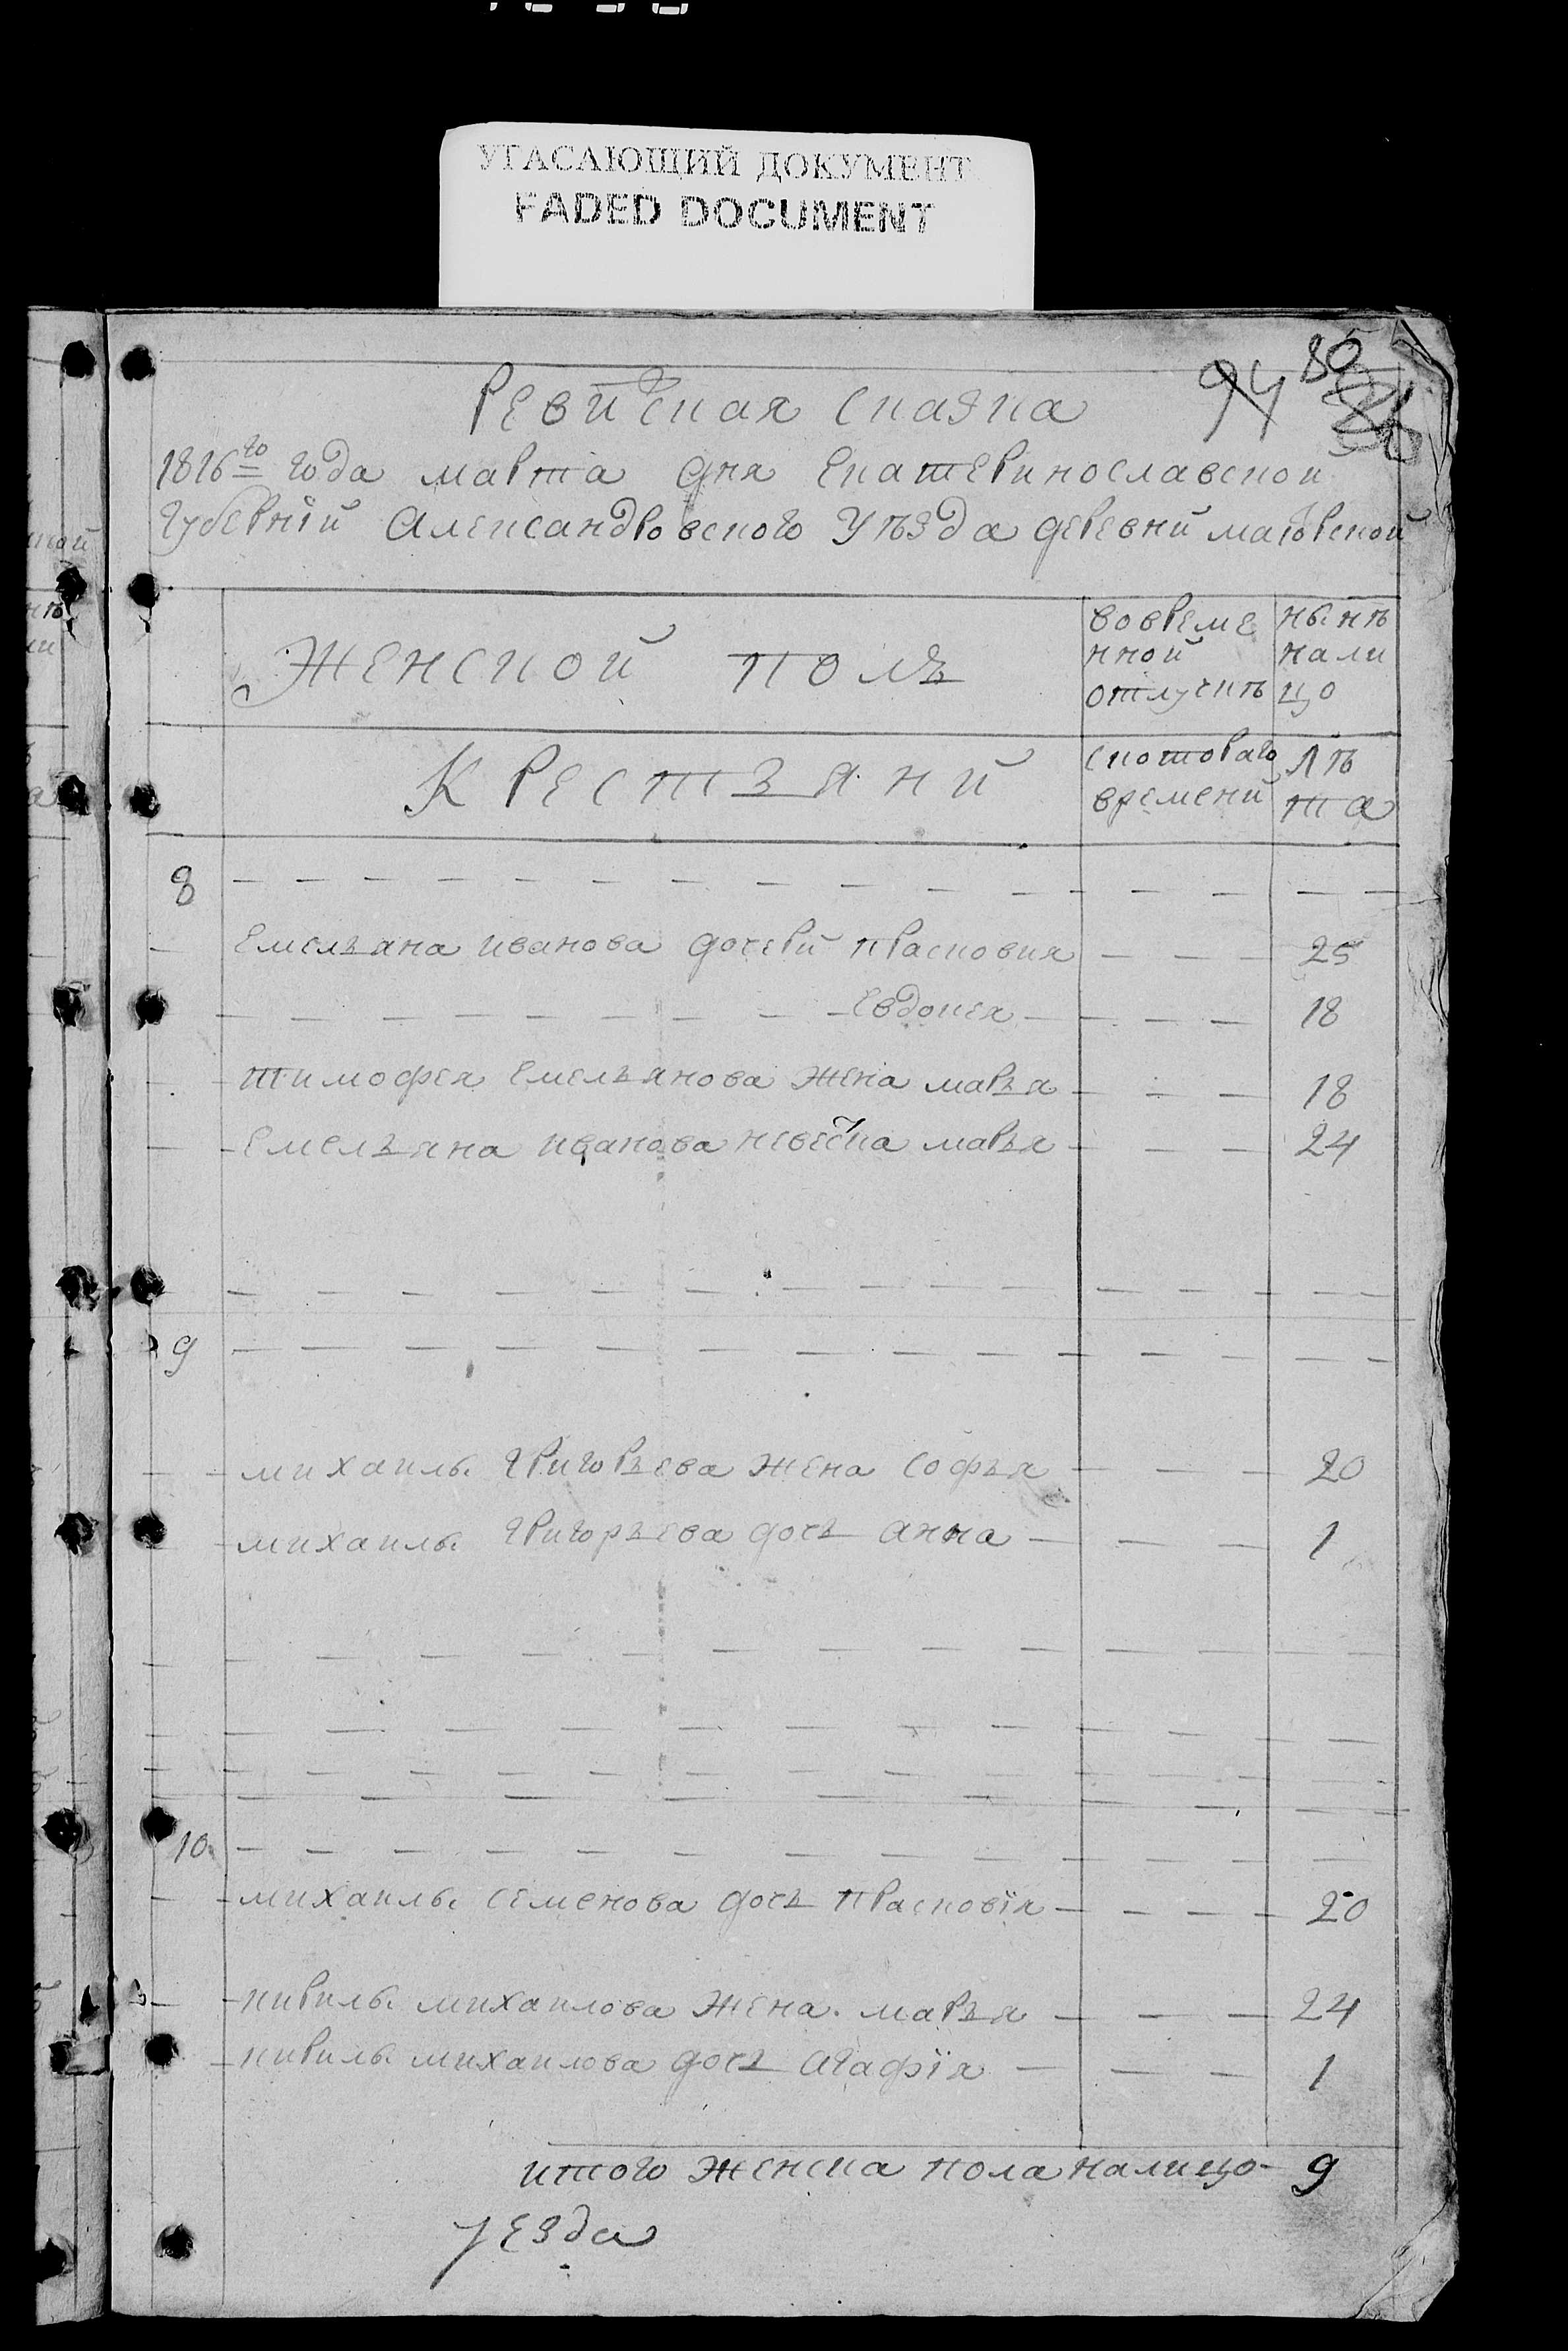 УГАСАЮЩИЙ ДОКУМЕНТ
FADED DOCUMENT
94 80
Ревижская сказка
1816го года марта дня Екатеринославской
Губернїй Александровского Уѣзда деревни
Женской полъ
вовреме
нной
отлучкѣ
нынѣ
нали
цо
Крестьянй
скотораго
временй
лѣ
та
8
Емельяна Иванова дочерй Прасковия 25
Евдокея 18
Тимофея Емельянова жена Марья 18
Емельяна Иванова невестка Марья 24
9
Михаилы Григорьева жена Софья 20
Михаилы Григорьева дочь Анна 1
10
Михаилы Семенова дочь Прасковїя 20
Кирилы Михаилова жена Марья 24
Кирилы Михаилова дочь Агафїя 1
итого женска пола налицо 9
уезда